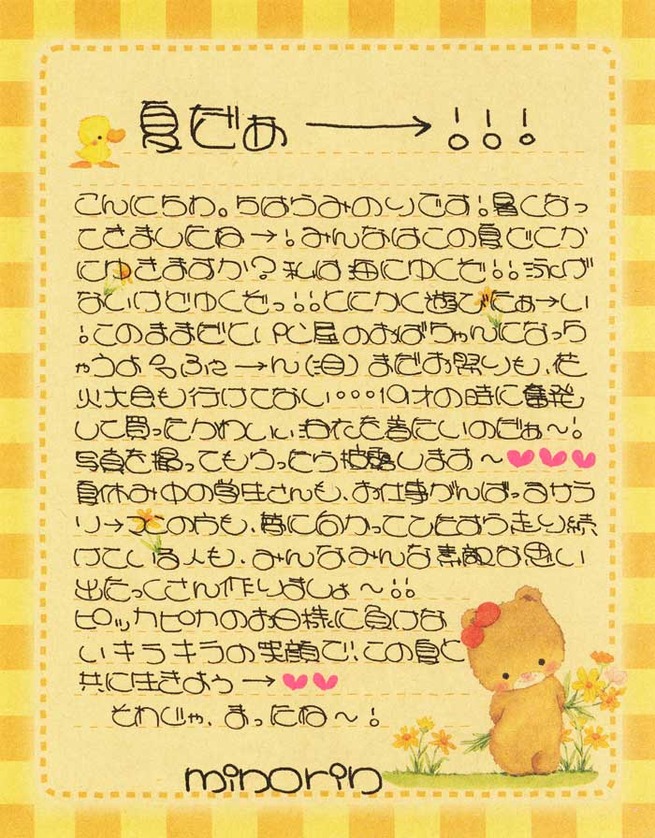 夏だぁ→!!!
こんにちわ。ちはらみのりです!暑くなっ
てきましたね→!みんなはこの夏どこか
にゆきますか?私は海にゆくぞ!!泳げ
ないけどゆくぞっ!!とにかく遊びたぁ→い
!このままだと、PC屋のおばちゃんになっち
ゃうよ ふぇ→ん(泪)まだお祭りも、花
火大会も行けてない...19才の時に奮発
して買ったかわいいゆかたを着たいのだぁ〜!
写真を撮ってもらったら披露します〜
夏休み中の学生さんも、お仕事がんばってるサラ
リ→の方も、夢に向かってひたすら走り続
けている人も、みんなみんな素敵な思い
出たっくさん作りましょ〜!!
ピッカピカのお日様に負けな
いキラキラの笑顔で、この夏を
共に生きよう→
それじゃ、まったね〜!
minorin